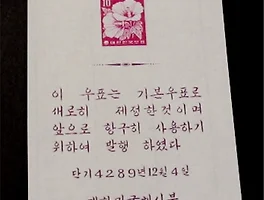 10
대한민국우표
이 우표는 기본우표로
새로히 제정할것이며
앞으로 항구히 사용하기
위하여 발행 하였다
단기4289년12월4일
대한민국체신부